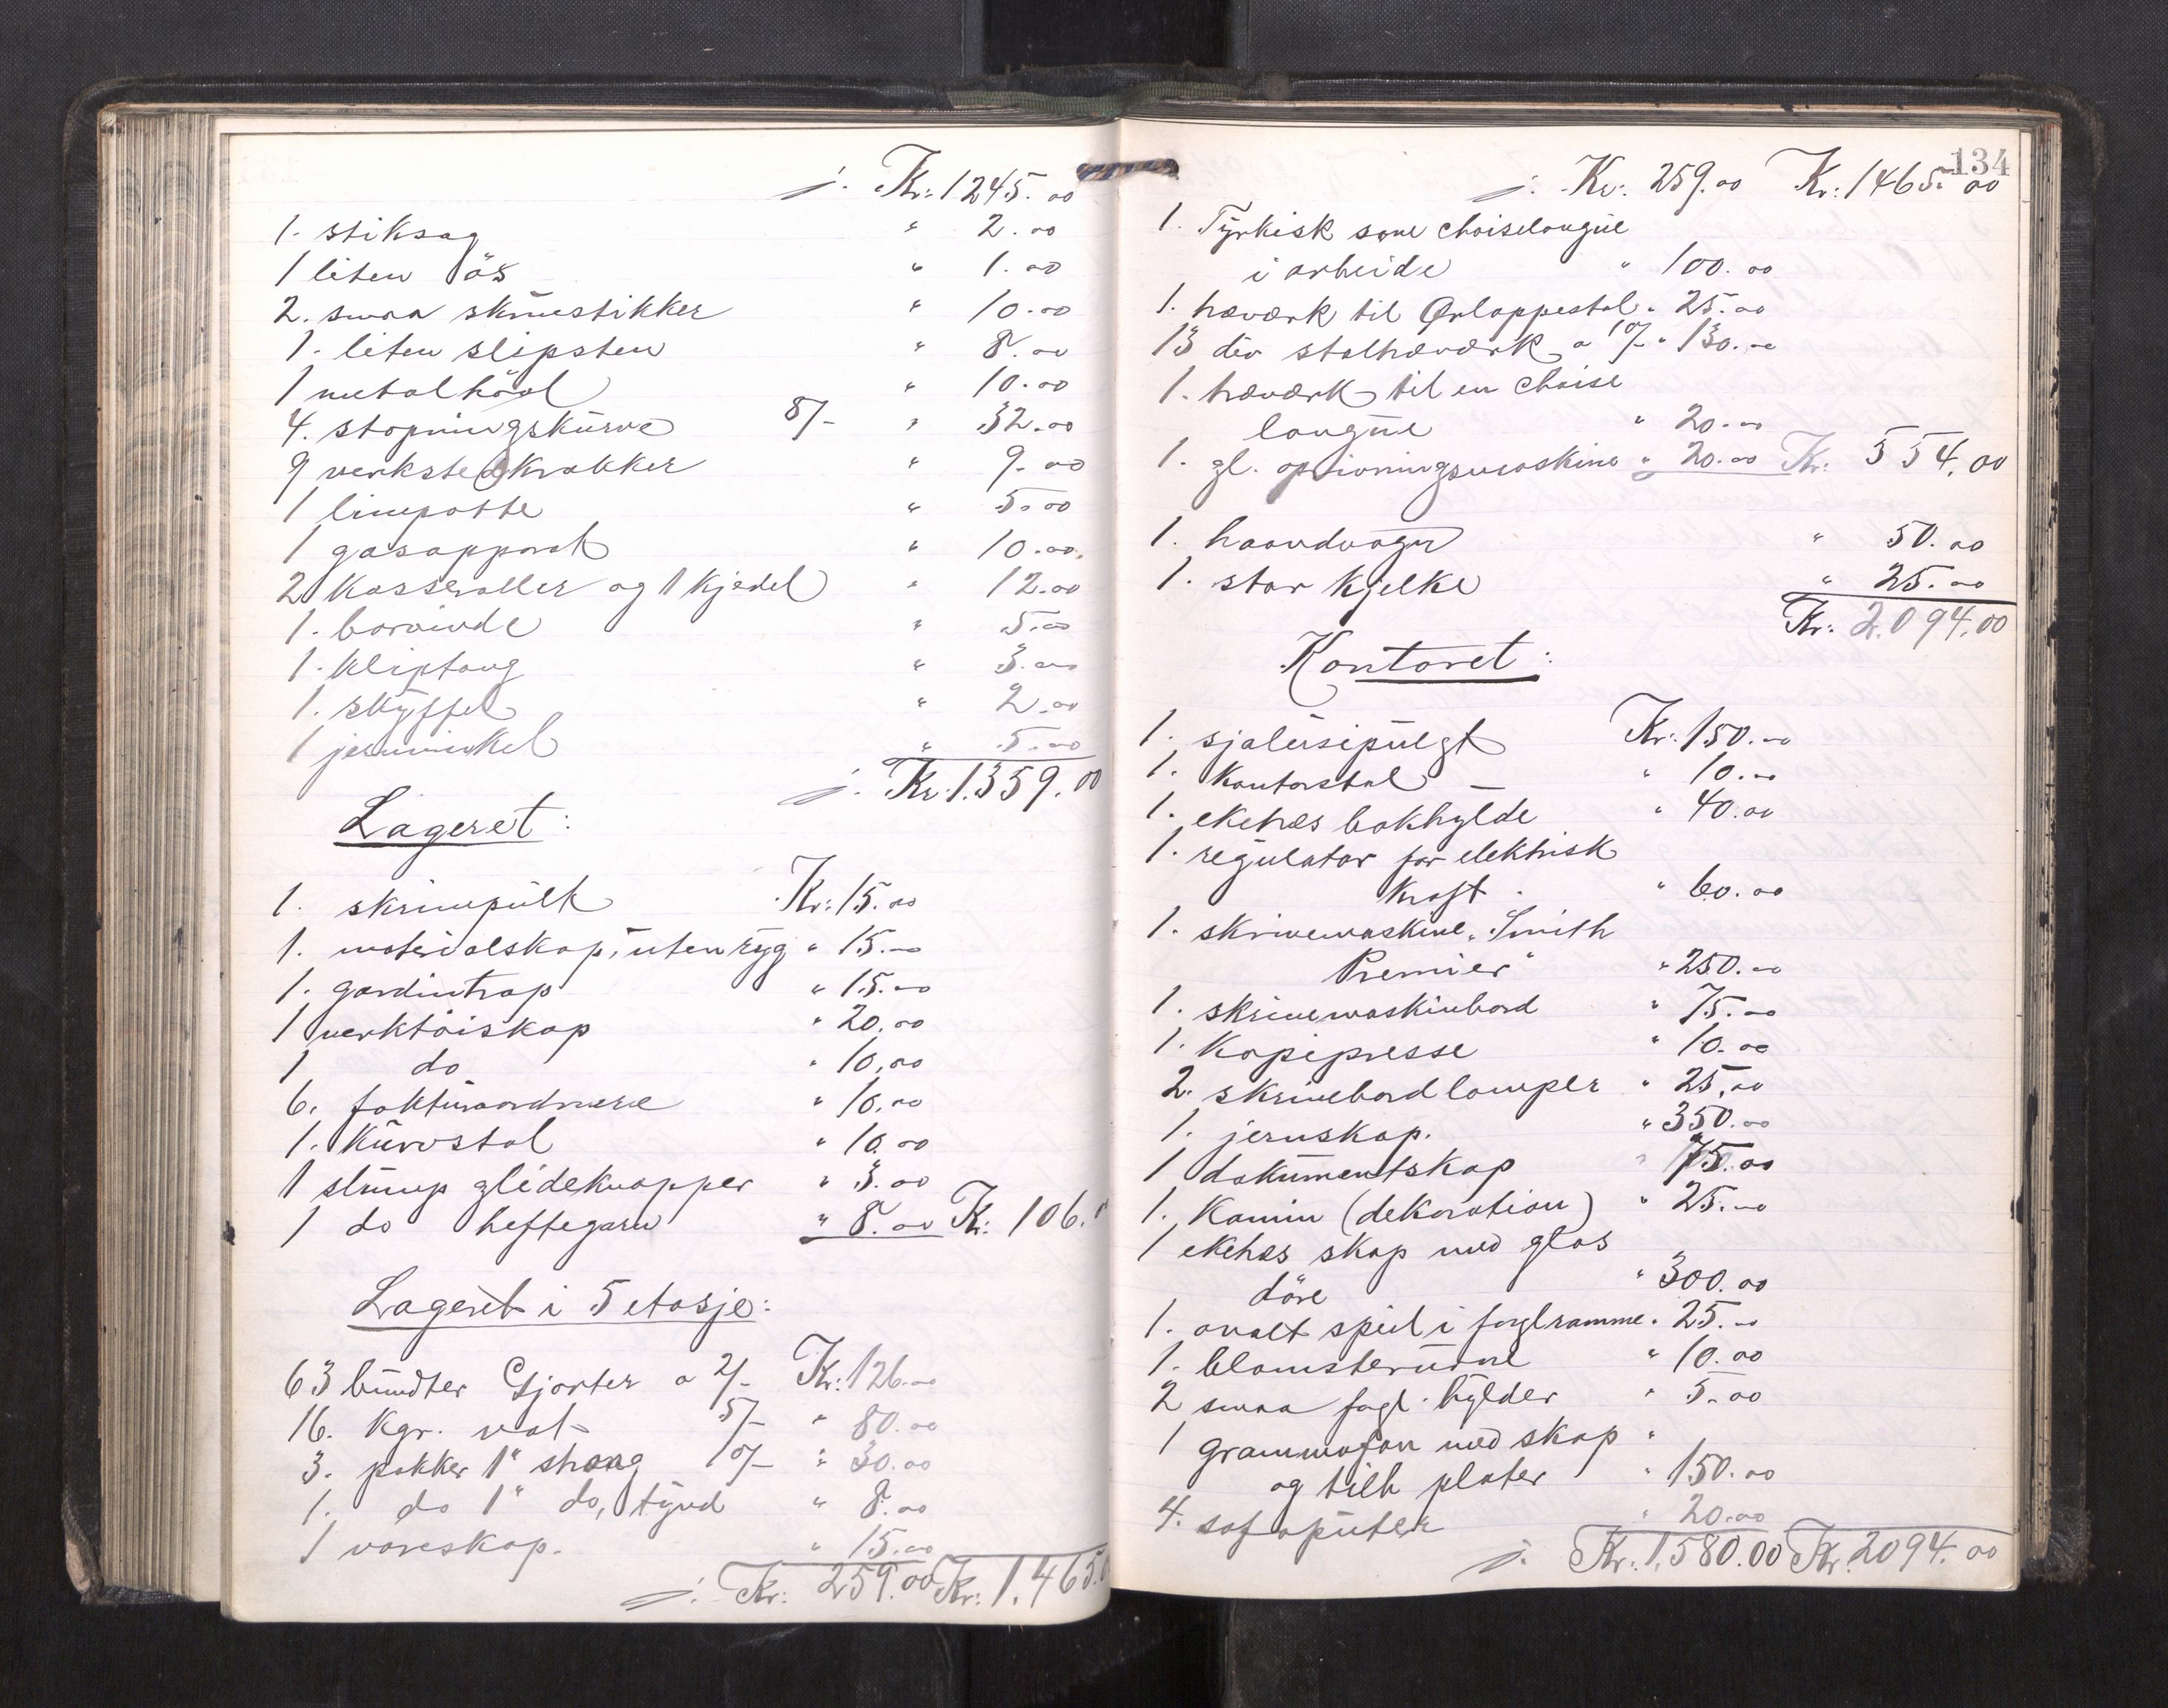 j. Kr: 1245.00
1. stiksag " 2.00
1 liten ös " 1.00
2. smaa skruestikker " 10.00
1. liten slipsten " 8.00
1 metalhövl " 10.00
4. stopningskurve 8/- " 32.00
9 verkstedkrakker " 9.00
1 limpotte " 5.00
1 gasapparat " 10.00
2 kasseroller og 1 kjedel " 12.00
1. borvinde " 5.00
1. kliptang " 3.00
1. skyffel " 2.00
1 jernvinkel " 5.00
j. Kr. 1.359.00
Lageret:
1. skrivepult Kr: 15.00
1. materialskap, uten ryg " 15.00
1. gardintrap " 15.00
1 verktöiskap " 20.00
1 do " 10.00
6. fakturaordnere " 10.00
1. kurvstol " 10.00
1 slump glideknapper " 3.00
1 do heftegarn " 8.00 Kr: 106.
Lageret i 5 etasje:
63 bundter Gjorter a 2/- Kr: 126.00
16. kgr. vat 5/- " 80.00
3. pakker 1" straag 10/- " 30.00
1. do 1" do, tynd " 8.00
1 vareskap. " 15.00
j. Kr: 259.00 Kr: 1.465.0
134
j. Kr: 259.00 Kr: 1465.00
1. Tyrkisk sove choiselongue
i arbeide " 100.00
1. træværk til Ørlappestol " 25.00
13 div stoltræværk a 10/- " 130.00
1. træværk til en choise
longue " 20.00
1. gl. oprivningsmaskine " 20.00 Kr: 554.00
1. haandvogn " 50.00
1. stor kjelke " 25.00
Kr: 2.094.00
Kontoret:
1. sjalusipulgt Kr: 150.00
1. kontorstol " 10.00
1. eketræs bokhylde " 40.00
1. regulator for elektrisk
kraft " 60.00
1. skrivemaskine "Smith
Premier" " 250.00
1. skrivemaskinbord " 75.00
1. kopipresse " 10.00
2. skrivebordlamper " 25.00
1. jernskap. " 350.00
1 dokumentskap " 75.00
1. Kamin (dekoration) " 25.00
1 eketræs skap med glas
döre " 300.00
1. ovalt speil i forglramme " 25.00
1. blomsterurne " 10.00
2 smaa fogl. hylder " 5.00
1 grammofon med skap "
og tilh plater " 150.00
4. sofaputer " 20.00
j. Kr. 1.580.00 Kr. 2094.00